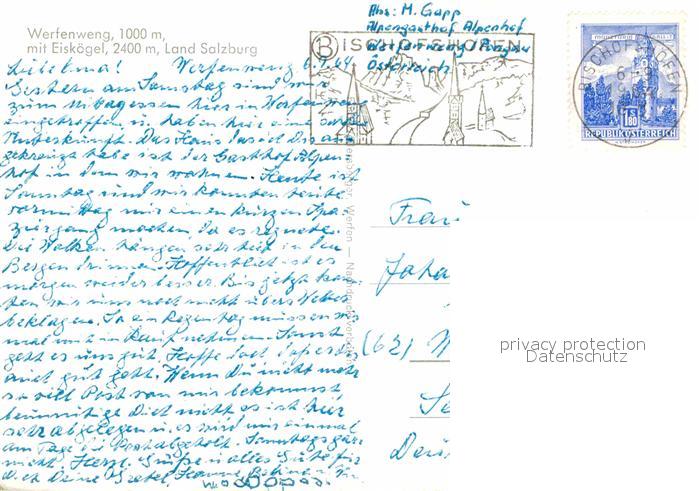 Werfenweng, 1000 m,
mit Eiskögel, 2400 m, Land Salzburg
Abs: M. Gapp
Alpengasthof Alpenhof
Werfenweng Pongau
Österreich
BISCHOFSHOFEN
BISCHOFSHOFEN
1.80
REPUBLIK ÖSTERREICH
Liebe Oma! Werfenweng 6.9.64
Gestern am Samstag sind wir
zum Mittagessen hier in Werfenweng
eingetroffen u. haben hier eine
Unterkunft. Das Haus das ich Dir an-
gekreuzt habe ist der Gasthof Alpen-
hof in dem wir wohnen. Heute ist
Sonntag und wir konnten heute
vormittag nur einen kurzen Spa-
ziergang machen da es regnete.
Die Wolken hängen sehr tief in den
Bergen drinnen. Hoffentlich ist es
morgen wieder besser. Bis jetzt konn-
ten wir uns noch nicht übers Wetter
beklagen. So ein Regentag müssen wir
mal mit in Kauf nehmen. Sonst
geht es uns gut. Hoffe daß es Dir
auch gut geht. Wenn Du nicht mehr
so viel Post von mir bekommst,
beunruhige Dich nicht es ist hier
sehr abgelegen u. es wird nur einmal
am Tage die Post abgeholt. Sonntags gar
nicht. Herzl. Grüße u. alles Gute für
Dich Deine Gretel
Frau
Joha
(62) W
Deu
privacy protection
Datenschutz